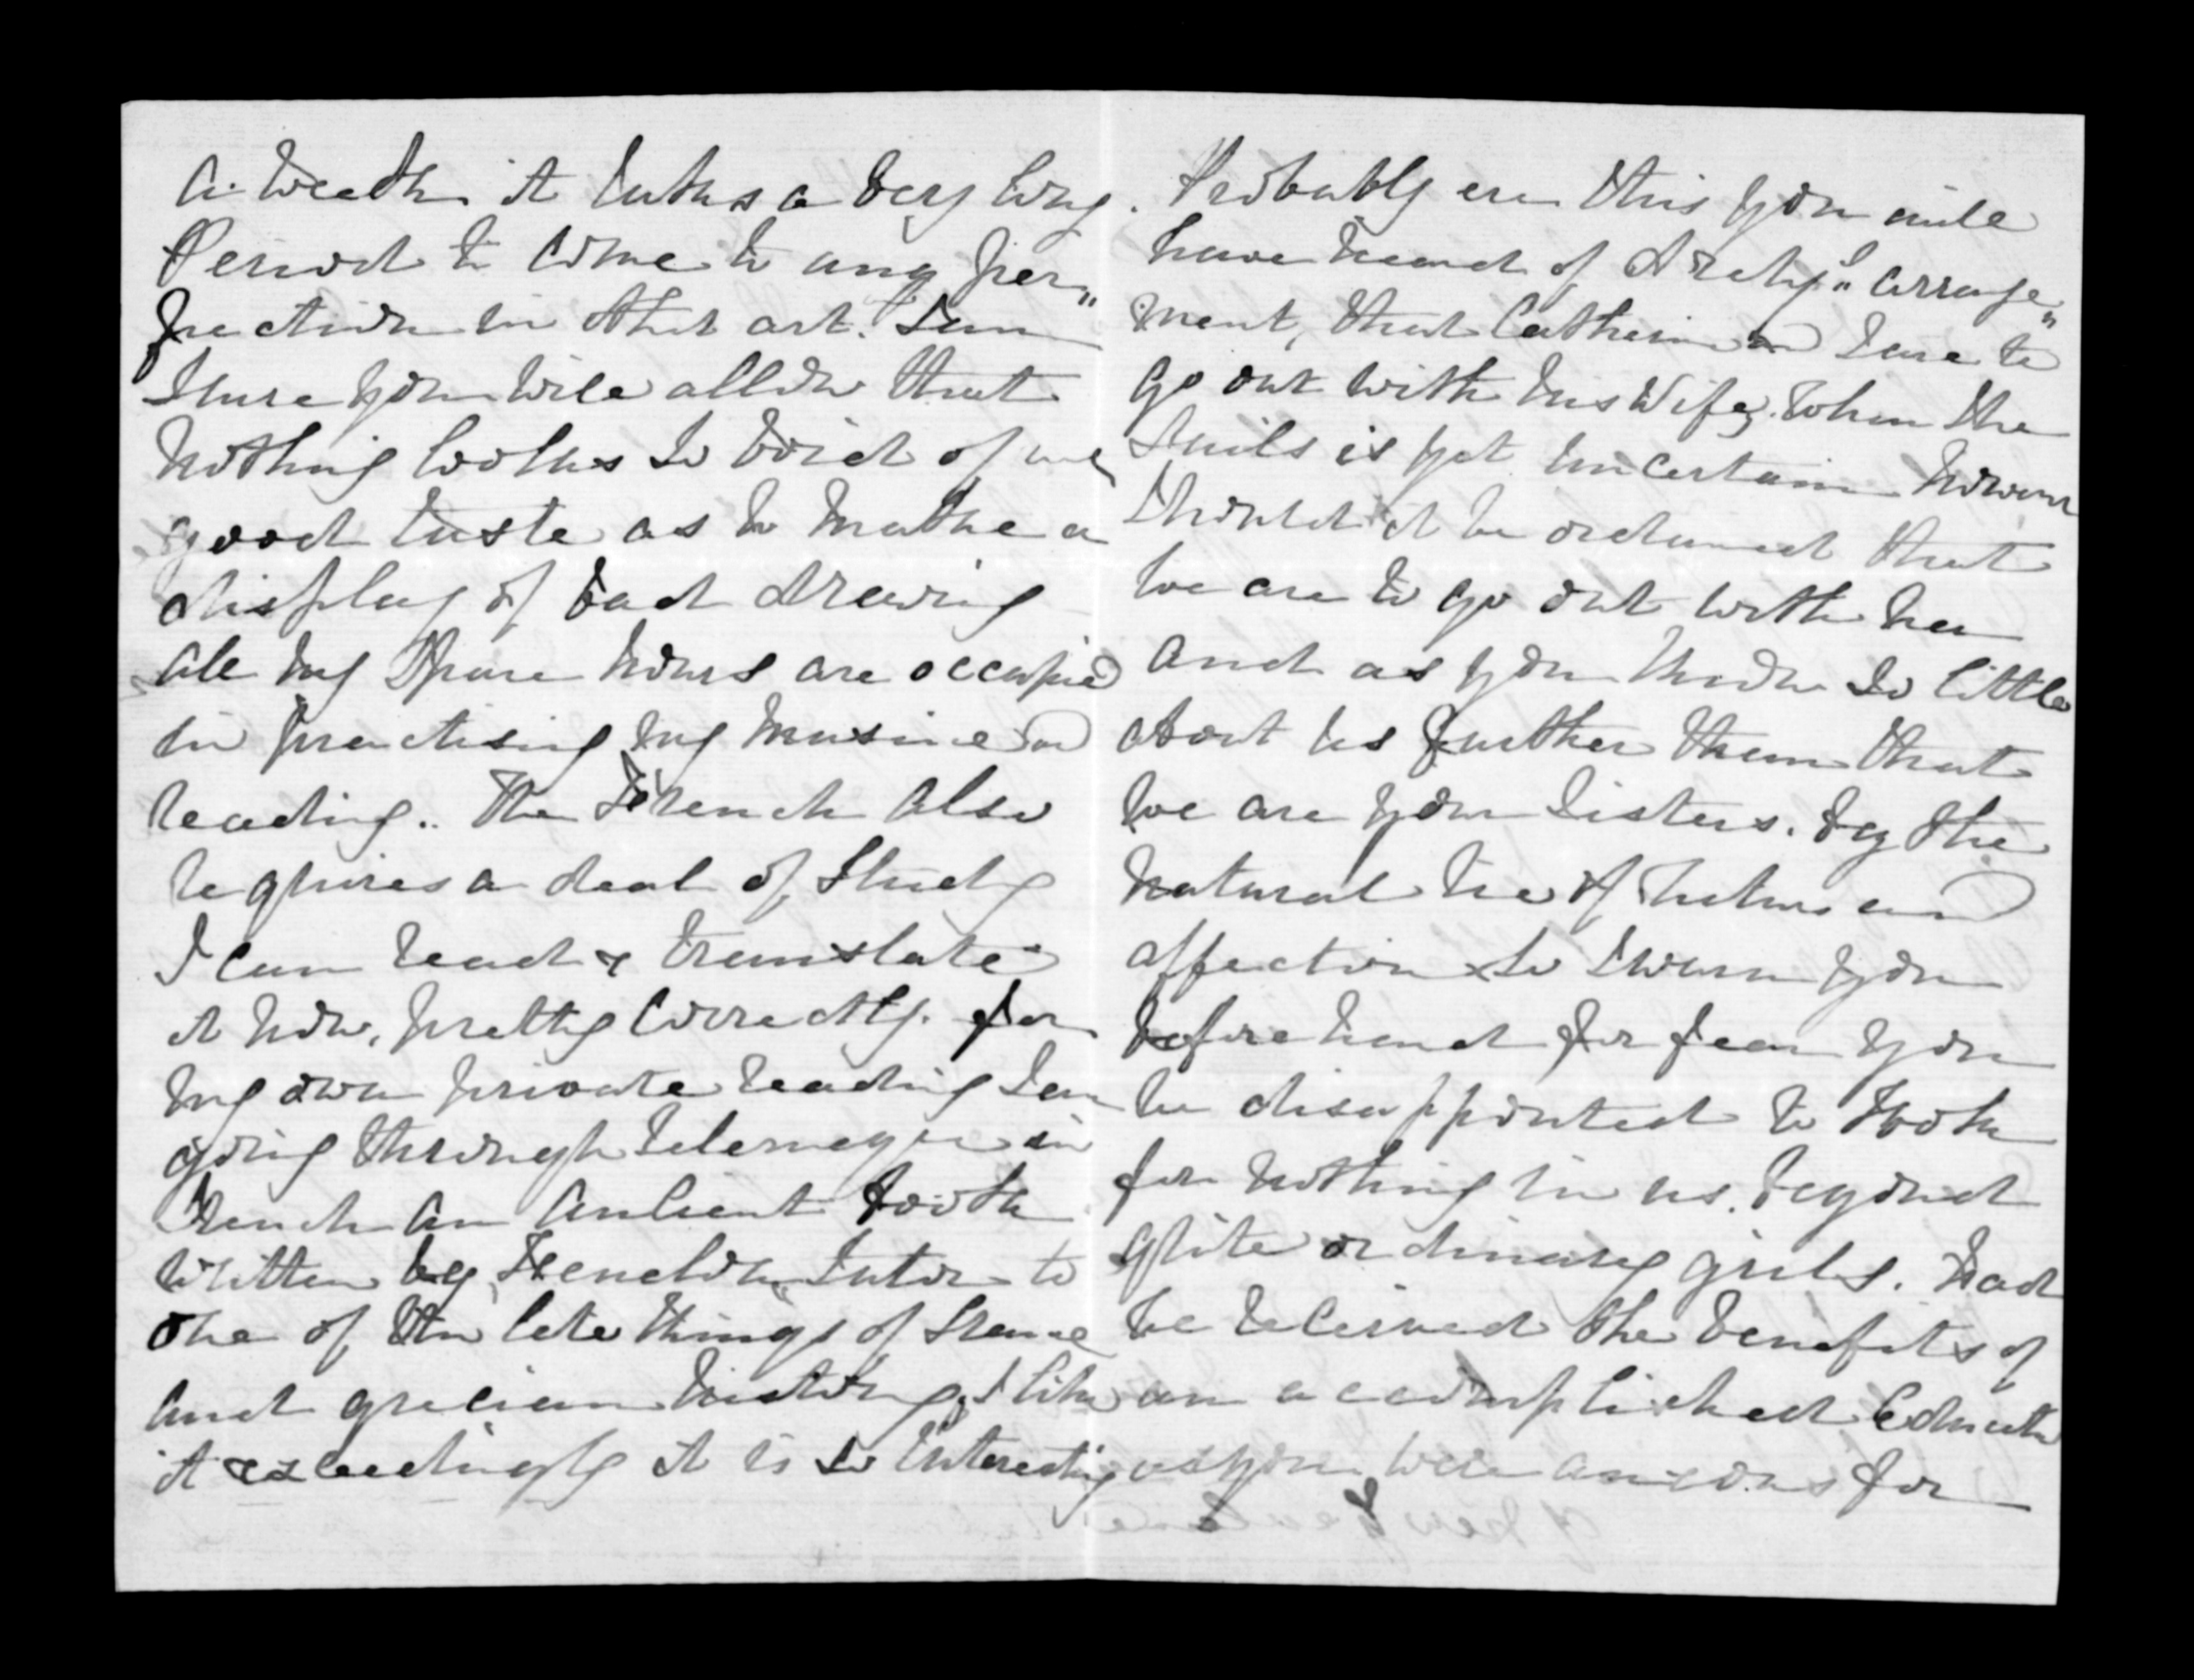 a week. it takes a very long
Period to come to any per„
fection in that art. I am
sure you will allow that
nothing looks so void of
good taste as to make a
display of bad drawing
all my Spare hours are occupied
in practising my music and
reading.. The French also
requires a deal of Study
I can read & translate
it now, pretty correctly. for
my own private reading I am
going through Telemaque in
French an ancient book
written by „Fenelon„ Tutor to
one of the late Kings of France
and grecian history, I like
it exceedingly it is so interesting
Probably ere this you will
have heard of Archy's arrange„
ment, that Catherine and I are to
go out with his Wife. When she
Sails is yet uncertain however
Should it be ordained that
we are to go out with her
and as you know so little
about us further than that
we are your Sisters. by the
natural tie of nature and
affection so I warn you
before hand for fear you
be disappointed to look
for nothing in us. beyond
quite ordinary girls. had
we received the benefits of
an accomplished Education
as you were anxious for